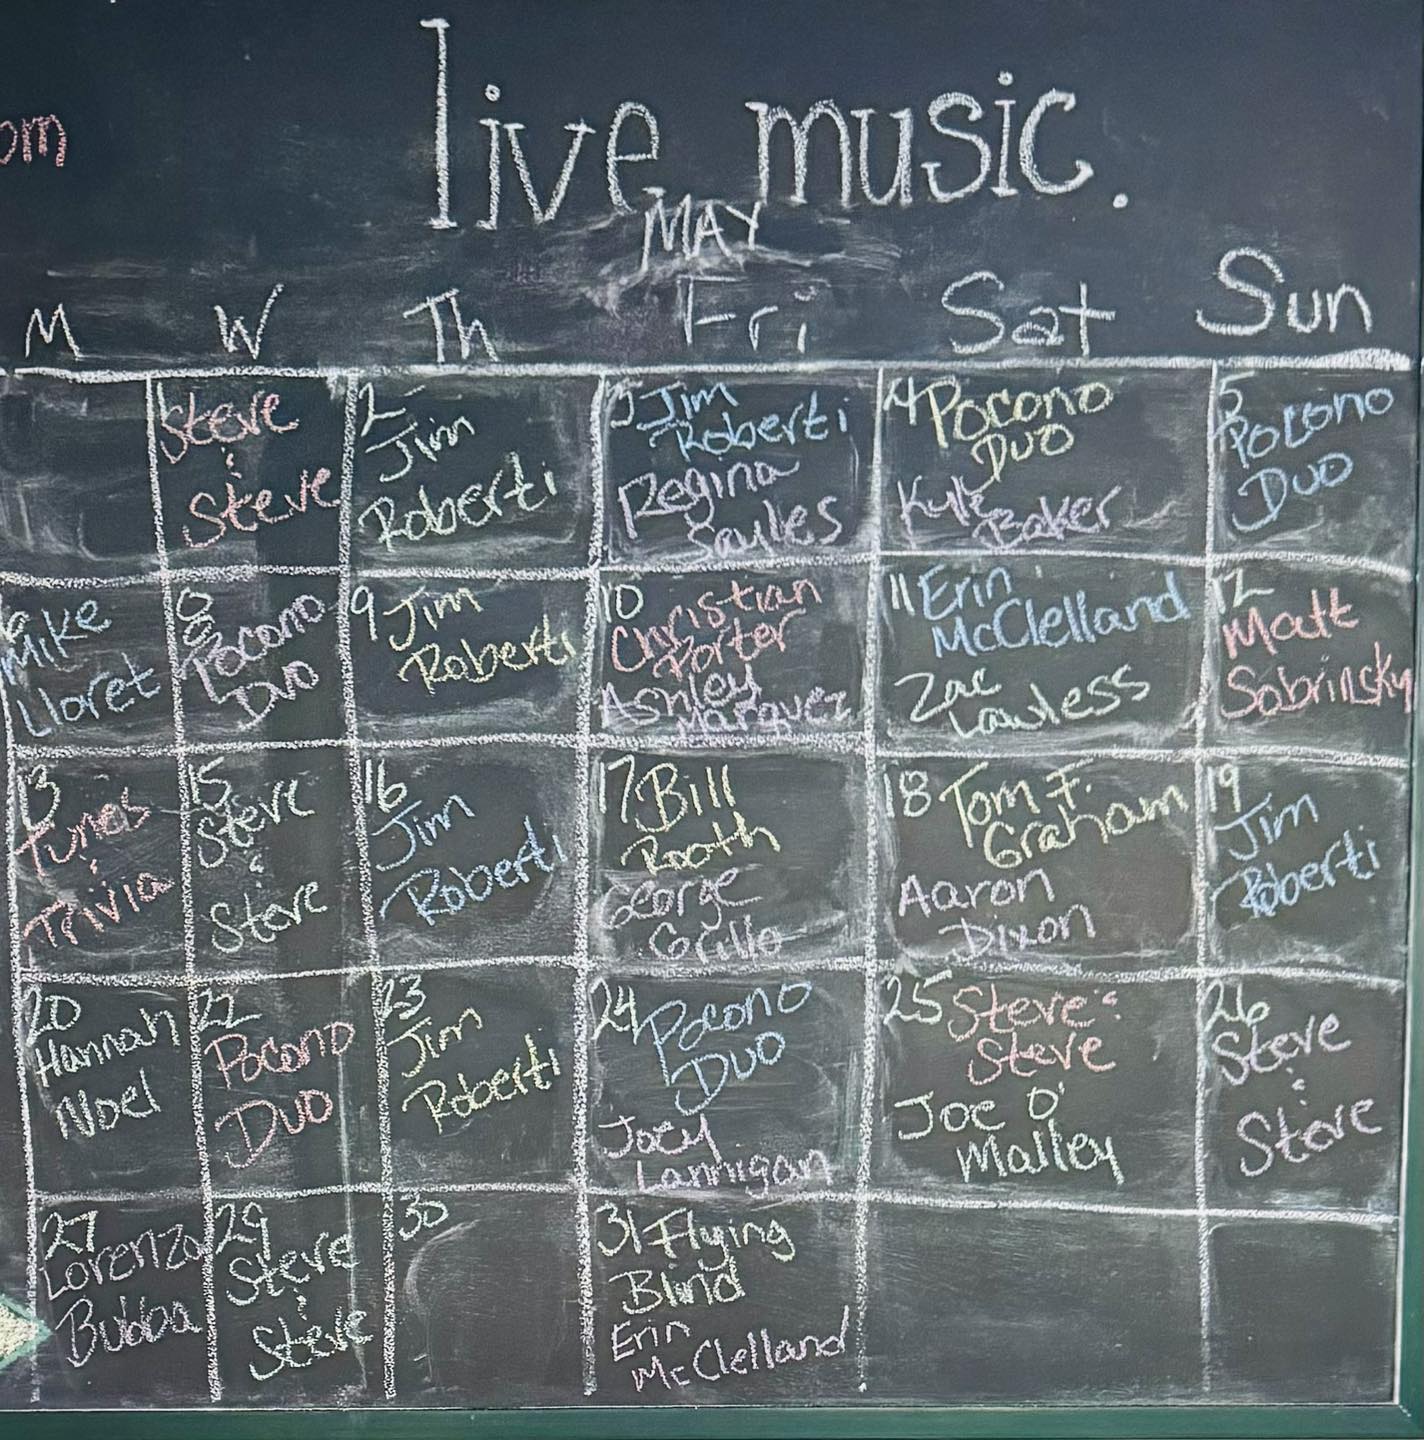 om
live music.
MAY
M W Th Fri Sat Sun
1 Steve
&
Steve
2
Jim
Roberti
3 Jim
Roberti
Regina
Sayles
4 Pocono
Duo
Kyle
Baker
5
Pocono
Duo
6
Mike
Lloret
8
Pocono
Duo
9 Jim
Roberti
10
Christian
Porter
Ashley
Marquez
11 Erin
McClelland
Zac
Lawless
12
Matt
Sobrinsky
13
Tunes
&
Trivia
15
Steve
&
Steve
16
Jim
Roberti
17 Bill
Rooth
George
Grillo
18 Tom F.
Graham
Aaron
Dixon
19
Jim
Roberti
20
Hannah
Noel
22
Pocono
Duo
23
Jim
Roberti
24 Pocono
Duo
Joey
Lannigan
25 Steve &
Steve
Joe O'
Malley
26
Steve
&
Steve
27
Lorenzo
Bubba
29
Steve
&
Steve
30
31 Flying
Blind
Erin
McClelland